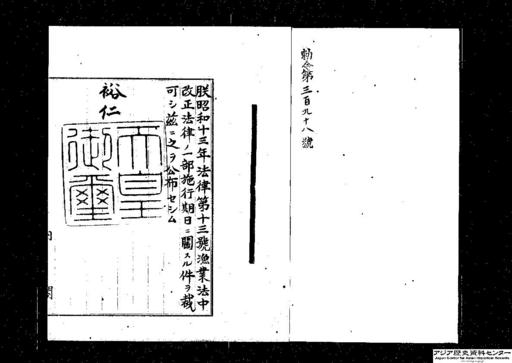 勅令第三百九十八號
朕昭和十三年法律第十三號漁業法中
改正法律ノ一部施行期日ニ關スル件ヲ裁
可シ茲ニ之ヲ公布セシム
裕仁
天皇
御璽
内閣
アジア歴史資料センター
Japan Center for Asian Historical Records